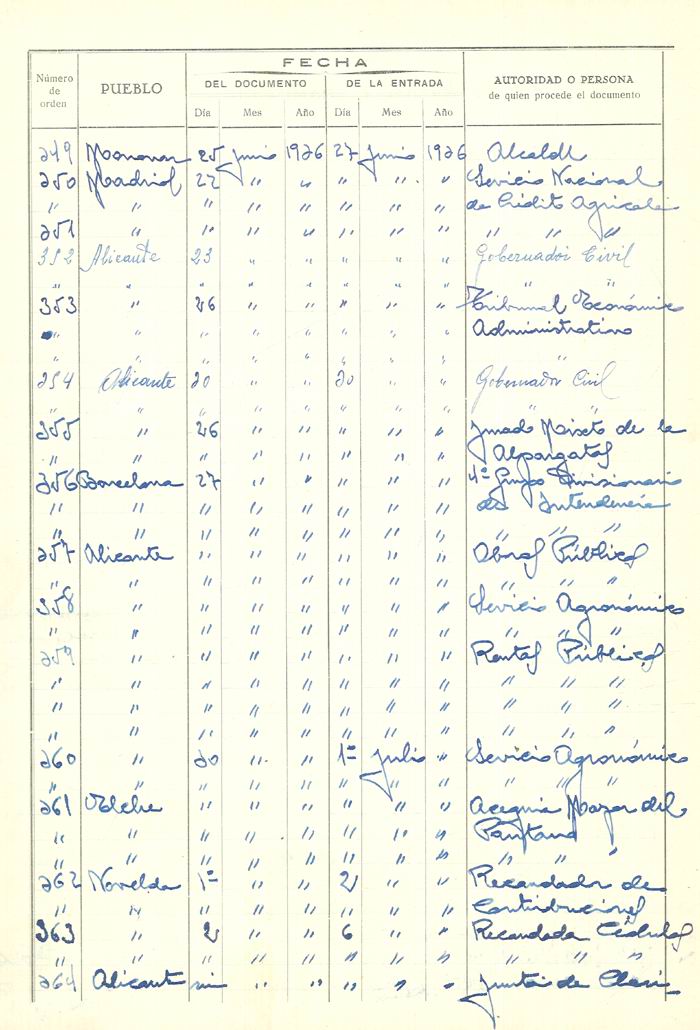 FECHA
Número de orden PUEBLO DEL DOCUMENTO DE LA ENTRADA AUTORIDAD O PERSONA de quien procede el documento
Día Mes Año Día Mes Año
249 25 Junio 1926 27 Junio 1926 Alcalde
250 Madrid 22 " " " " " Servicio Nacional
" " " " " " " " de Crédito Agricola
251 " " " " " " " " " "
352 Alicante 23 " " " " " Gobernador Civil
" " " " " " " "
353 " 26 " " " " " Tribunal Económico
" " " " " " " Administrativo
" " " " " " " " "
254 Alicante 30 " " 30 " " Gobernador Civil
" " " " " " " " " "
355 " 26 " " " " " Jurado Mixto de la
" " " " " " " " Alpargatas
356 Barcelona 27 " " " " " 4º Grupo Divisionario
" " " " " " " " de Intendencia
" " " " " " " " " " "
257 Alicante " " " " " " Obras Públicas
" " " " " " " " " " "
358 " " " " " " " Servicio Agronómico
" " " " " " " " " " "
259 " " " " " " " Rentas Públicas
" " " " " " " " " " "
" " " " " " " " " " "
" " " " " " " " " " "
260 " 30 " " 1º Julio " Servicio Agronómico
" " " " " " " " " " "
261 Elche " " " " " " Acequia Mayor del
" " " " " " " " Pantano
" " " " " " " " " " "
262 Novelda 1º " " 2 " " Recaudador de
" " " " " " " " Contribuciones
363 " 2 " " 6 " " Recaudada Cédulas
" " " " " " " " " " "
264 Alicante " " " " " Junta de